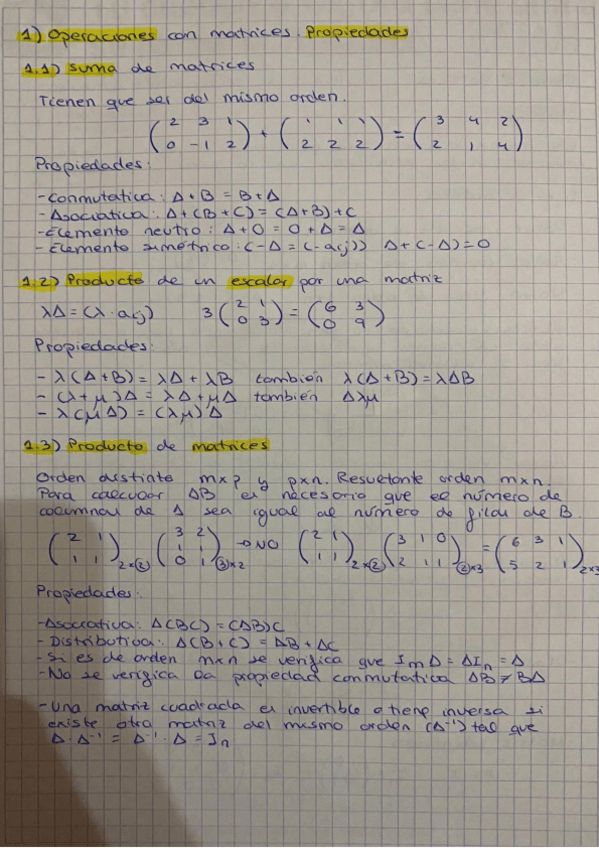 1) Operaciones con matrices. Propiedades
1.1) Suma de matrices
Tienen que ser del mismo orden.
(2 3 1 / 0 -1 2) + (1 1 1 / 2 2 2) = (3 4 2 / 2 1 4)
Propiedades:
- Conmutativa: A + B = B + A
- Asociativa: A + (B + C) = (A + B) + C
- Elemento neutro: A + O = O + A = A
- Elemento simétrico: (-A = (-aij)) A + (-A) = O
1.2) Producto de un escalar por una matriz
λA = (λ · aij) 3 (2 1 / 0 3) = (6 3 / 0 9)
Propiedades:
- λ(A+B) = λA + λB también λ(A+B) = λAB
- (λ + μ)A = λA + μA también Aλμ
- λ(μA) = (λμ)A
1.3) Producto de matrices
Orden distinto m×p y p×n. Resultante orden m×n.
Para calcular AB es necesario que el número de
columnas de A sea igual al número de filas de B.
(2 1 / 1 1)2×2 (3 2 / 1 1 / 0 1)3×2 → NO (2 1 / 1 1)2×2 (3 1 0 / 2 1 1)2×3 = (6 3 1 / 5 2 1)2×3
Propiedades:
- Asociativa: A(BC) = (AB)C
- Distributiva: A(B+C) = AB + AC
- Si es de orden m×n se verifica que ImA = AIn = A
- No se verifica la propiedad conmutativa AB ≠ BA
- Una matriz cuadrada es invertible o tiene inversa si
existe otra matriz del mismo orden (A⁻¹) tal que
A · A⁻¹ = A⁻¹ · A = In